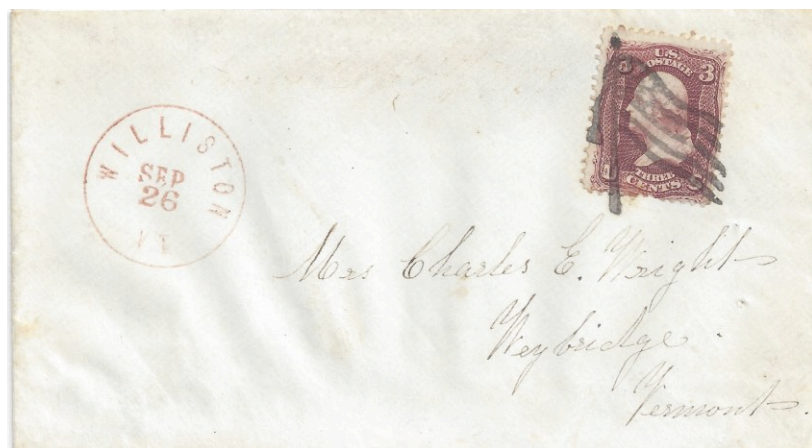 WILLISTON
SEP
26
VT
U.S.
POSTAGE
3 3
THREE
CENTS
Mrs Charles E. Wright
Weybridge.
Vermont.